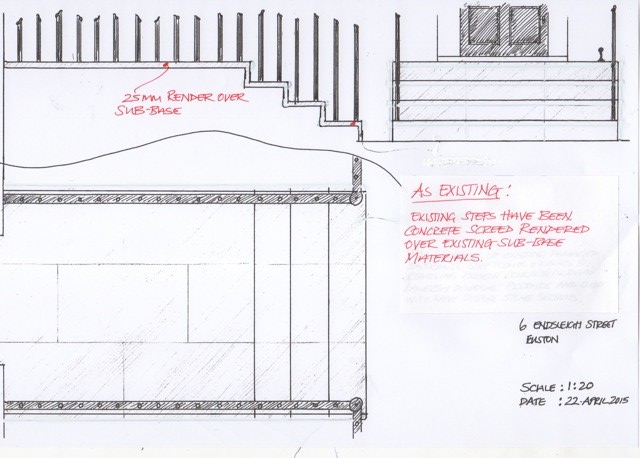 25MM RENDER OVER
SUB-BASE
AS EXISTING:
EXISTING STEPS HAVE BEEN
CONCRETE SCREED RENDERED
OVER EXISTING SUB-BASE
MATERIALS.
6 ENDSLEIGH STREET
EUSTON
SCALE : 1:20
DATE : 22 APRIL 2015